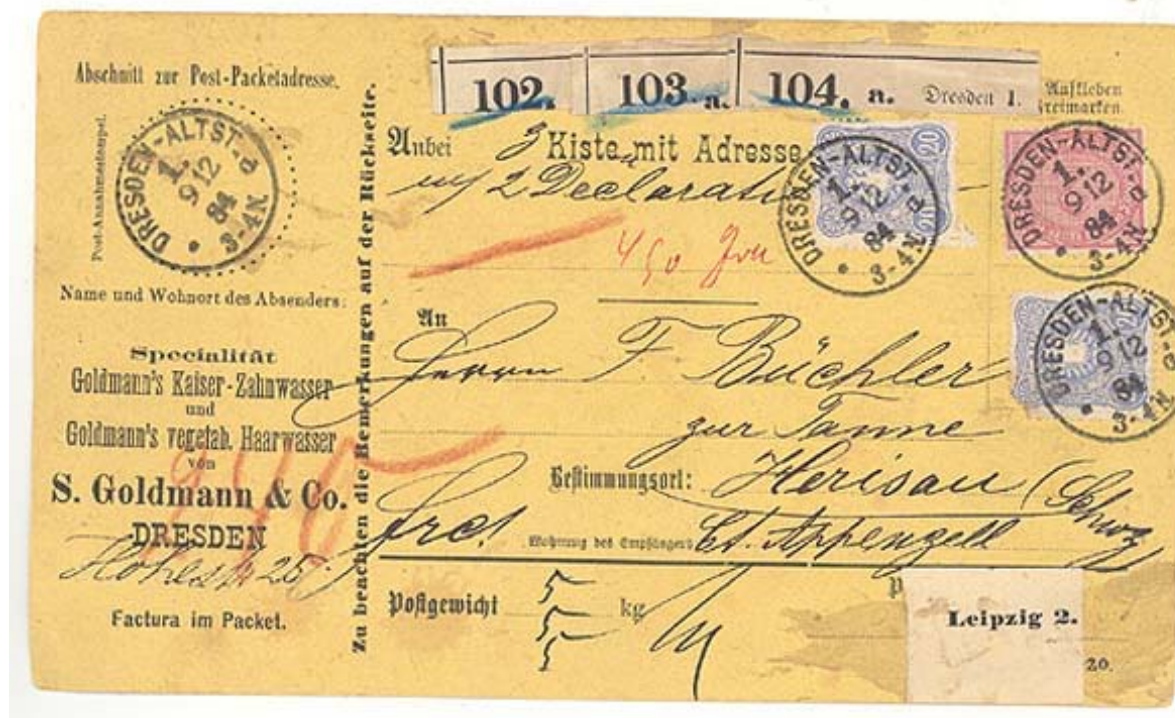 Abschnitt zur Post-Packetadresse.
Post-Annahmestempel.
DRESDEN-ALTST. d
1.
9 12
84
3-4N.
Name und Wohnort des Absenders:
Specialität
Goldmann's Kaiser-Zahnwasser
und
Goldmann's vegetab. Haarwasser
von
S. Goldmann & Co.
DRESDEN
Hohestr 25
Factura im Packet.
Zu beachten die Bemerkungen auf der Rückseite.
102.
103 a.
104. a. Dresden 1.
Aufkleben
Freimarken.
Anbei 3 Kiste mit Adresse
2 Declarati
20
20
DRESDEN-ALTST. d
1.
9 12
84
3-4N
DRESDEN-ALTST. d
1.
9 12
84
3-4N
DRESDEN-ALTST. d
1.
9 12
84
3-4N
An
Herrn F. Büchler
zur Tanne
Bestimmungsort: Herisau (Schwz
frco! Wohnung des Empfängers Ct. Appenzell
Postgewicht 5 kg
5
5
Leipzig 2.
20.